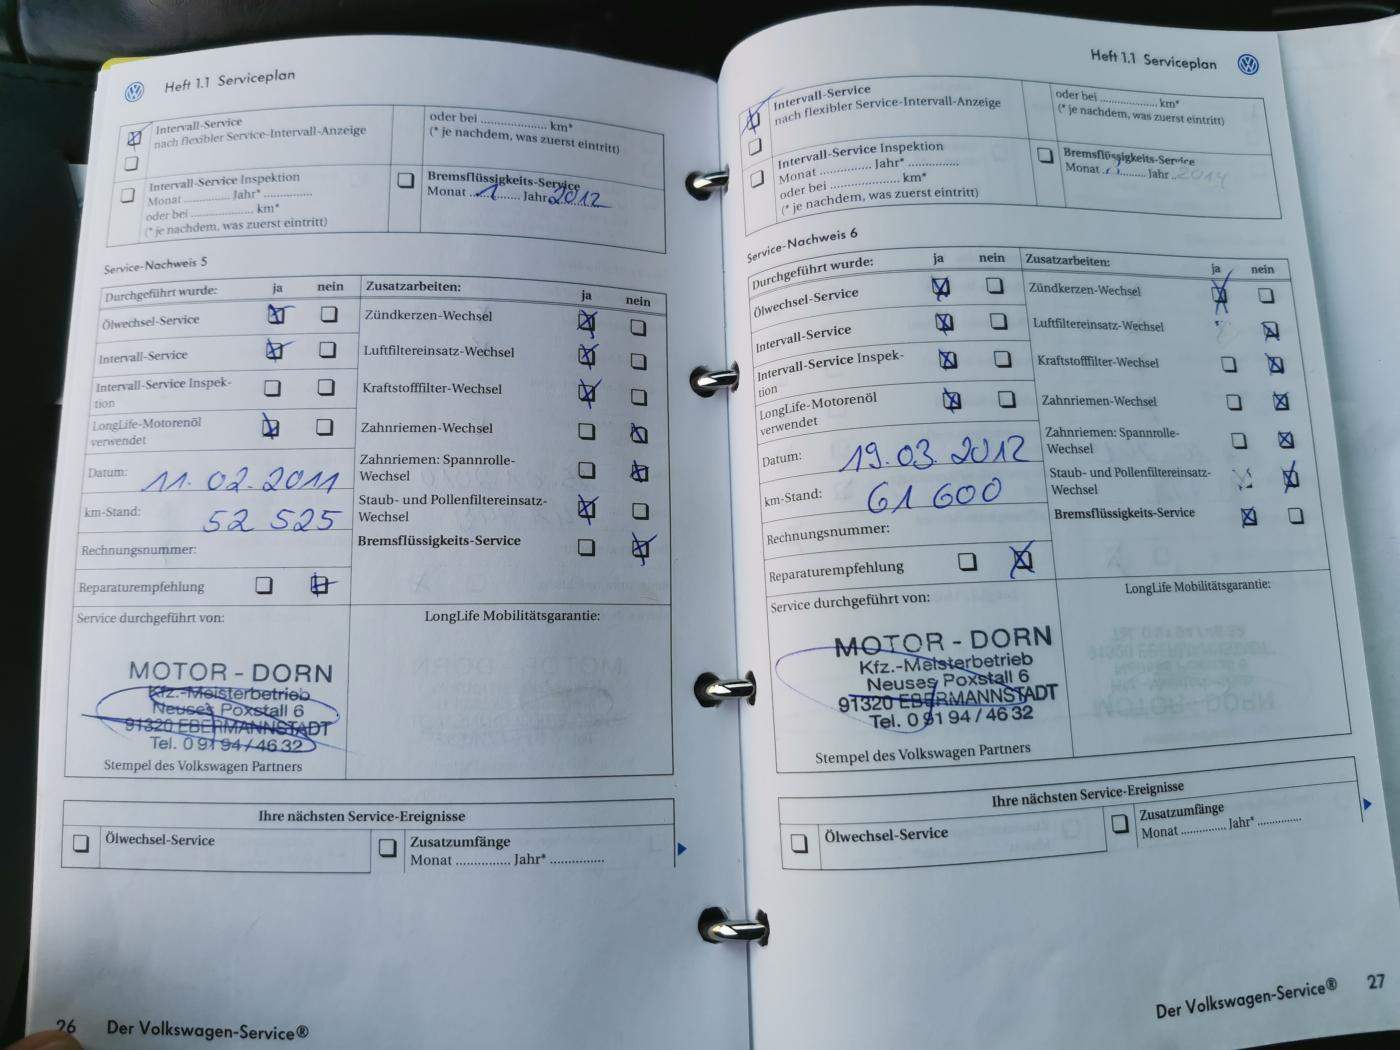 Heft 1.1 Serviceplan
Intervall-Service
nach flexibler Service-Intervall-Anzeige
oder bei .................... km*
(* je nachdem, was zuerst eintritt)
Intervall-Service Inspektion
Monat .............. Jahr* ..............
oder bei .................... km*
(* je nachdem, was zuerst eintritt)
Bremsflüssigkeits-Service
Monat ..1.. Jahr 2012
Service-Nachweis 5
Durchgeführt wurde: ja nein
Ölwechsel-Service
Intervall-Service
Intervall-Service Inspek-
tion
LongLife-Motorenöl
verwendet
Datum: 11.02.2011
km-Stand: 52 525
Rechnungsnummer:
Reparaturempfehlung
Zusatzarbeiten: ja nein
Zündkerzen-Wechsel
Luftfiltereinsatz-Wechsel
Kraftstofffilter-Wechsel
Zahnriemen-Wechsel
Zahnriemen: Spannrolle-
Wechsel
Staub- und Pollenfiltereinsatz-
Wechsel
Bremsflüssigkeits-Service
Service durchgeführt von:
LongLife Mobilitätsgarantie:
MOTOR - DORN
Kfz.-Meisterbetrieb
Neuses Poxstall 6
91320 EBERMANNSTADT
Tel. 0 91 94 / 46 32
Stempel des Volkswagen Partners
Ihre nächsten Service-Ereignisse
Ölwechsel-Service
Zusatzumfänge
Monat ............... Jahr* ...............
26 Der Volkswagen-Service®
Heft 1.1 Serviceplan
Intervall-Service
nach flexibler Service-Intervall-Anzeige
oder bei .................... km*
(* je nachdem, was zuerst eintritt)
Intervall-Service Inspektion
Monat .............. Jahr* ..............
oder bei .................... km*
(* je nachdem, was zuerst eintritt)
Bremsflüssigkeits-Service
Monat ........ Jahr 2014
Service-Nachweis 6
Durchgeführt wurde: ja nein
Ölwechsel-Service
Intervall-Service
Intervall-Service Inspek-
tion
LongLife-Motorenöl
verwendet
Datum: 19.03.2012
km-Stand: 61 600
Rechnungsnummer:
Reparaturempfehlung
Zusatzarbeiten: ja nein
Zündkerzen-Wechsel
Luftfiltereinsatz-Wechsel
Kraftstofffilter-Wechsel
Zahnriemen-Wechsel
Zahnriemen: Spannrolle-
Wechsel
Staub- und Pollenfiltereinsatz-
Wechsel
Bremsflüssigkeits-Service
Service durchgeführt von:
LongLife Mobilitätsgarantie:
MOTOR - DORN
Kfz.-Meisterbetrieb
Neuses Poxstall 6
91320 EBERMANNSTADT
Tel. 0 91 94 / 46 32
Stempel des Volkswagen Partners
Ihre nächsten Service-Ereignisse
Ölwechsel-Service
Zusatzumfänge
Monat ............... Jahr* ...............
Der Volkswagen-Service® 27